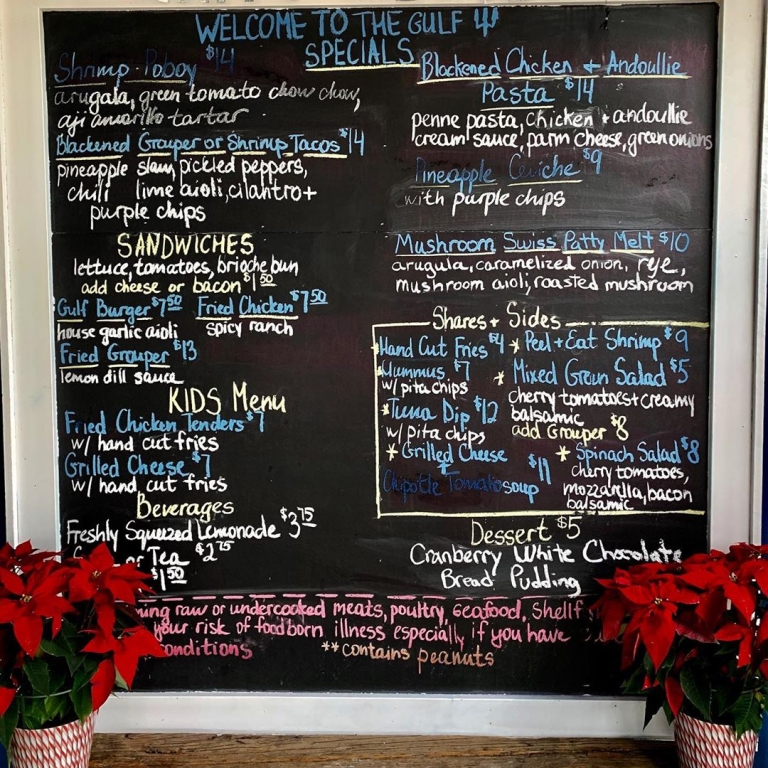 WELCOME TO THE GULF
SPECIALS
Shrimp Poboy $14
arugala, green tomato chow chow,
aji amarillo tartar
Blackened Grouper or Shrimp Tacos $14
pineapple slaw, pickled peppers,
chili lime aioli, cilantro +
purple chips
Blackened Chicken + Andoullie
Pasta $14
penne pasta, chicken + andoullie
cream sauce, parm cheese, green onions
Pineapple Ceviche $9
with purple chips
SANDWICHES
lettuce, tomatoes, brioche bun
add cheese or bacon $1.50
Gulf Burger $7.50
house garlic aioli
Fried Chicken $7.50
spicy ranch
Fried Grouper $13
lemon dill sauce
Mushroom Swiss Patty Melt $10
arugula, caramelized onion, rye,
mushroom aioli, roasted mushroom
KIDS Menu
Fried Chicken Tenders $7
w/ hand cut fries
Grilled Cheese $7
w/ hand cut fries
Beverages
Freshly Squeezed Lemonade $3.75
or Tea $2.75
$1.50
Shares + Sides
Hand Cut Fries $4
*Hummus $7
w/ pita chips
*Tuna Dip $12
w/ pita chips
*Grilled Cheese
Chipotle Tomato soup $11
*Peel + Eat Shrimp $9
*Mixed Green Salad $5
cherry tomatoes + creamy
balsamic
add Grouper $8
*Spinach Salad $8
cherry tomatoes,
mozzarella, bacon
balsamic
Dessert $5
Cranberry White Chocolate
Bread Pudding
raw or undercooked meats, poultry, seafood,
your risk of foodborn illness especially if you have
conditions **contains peanuts